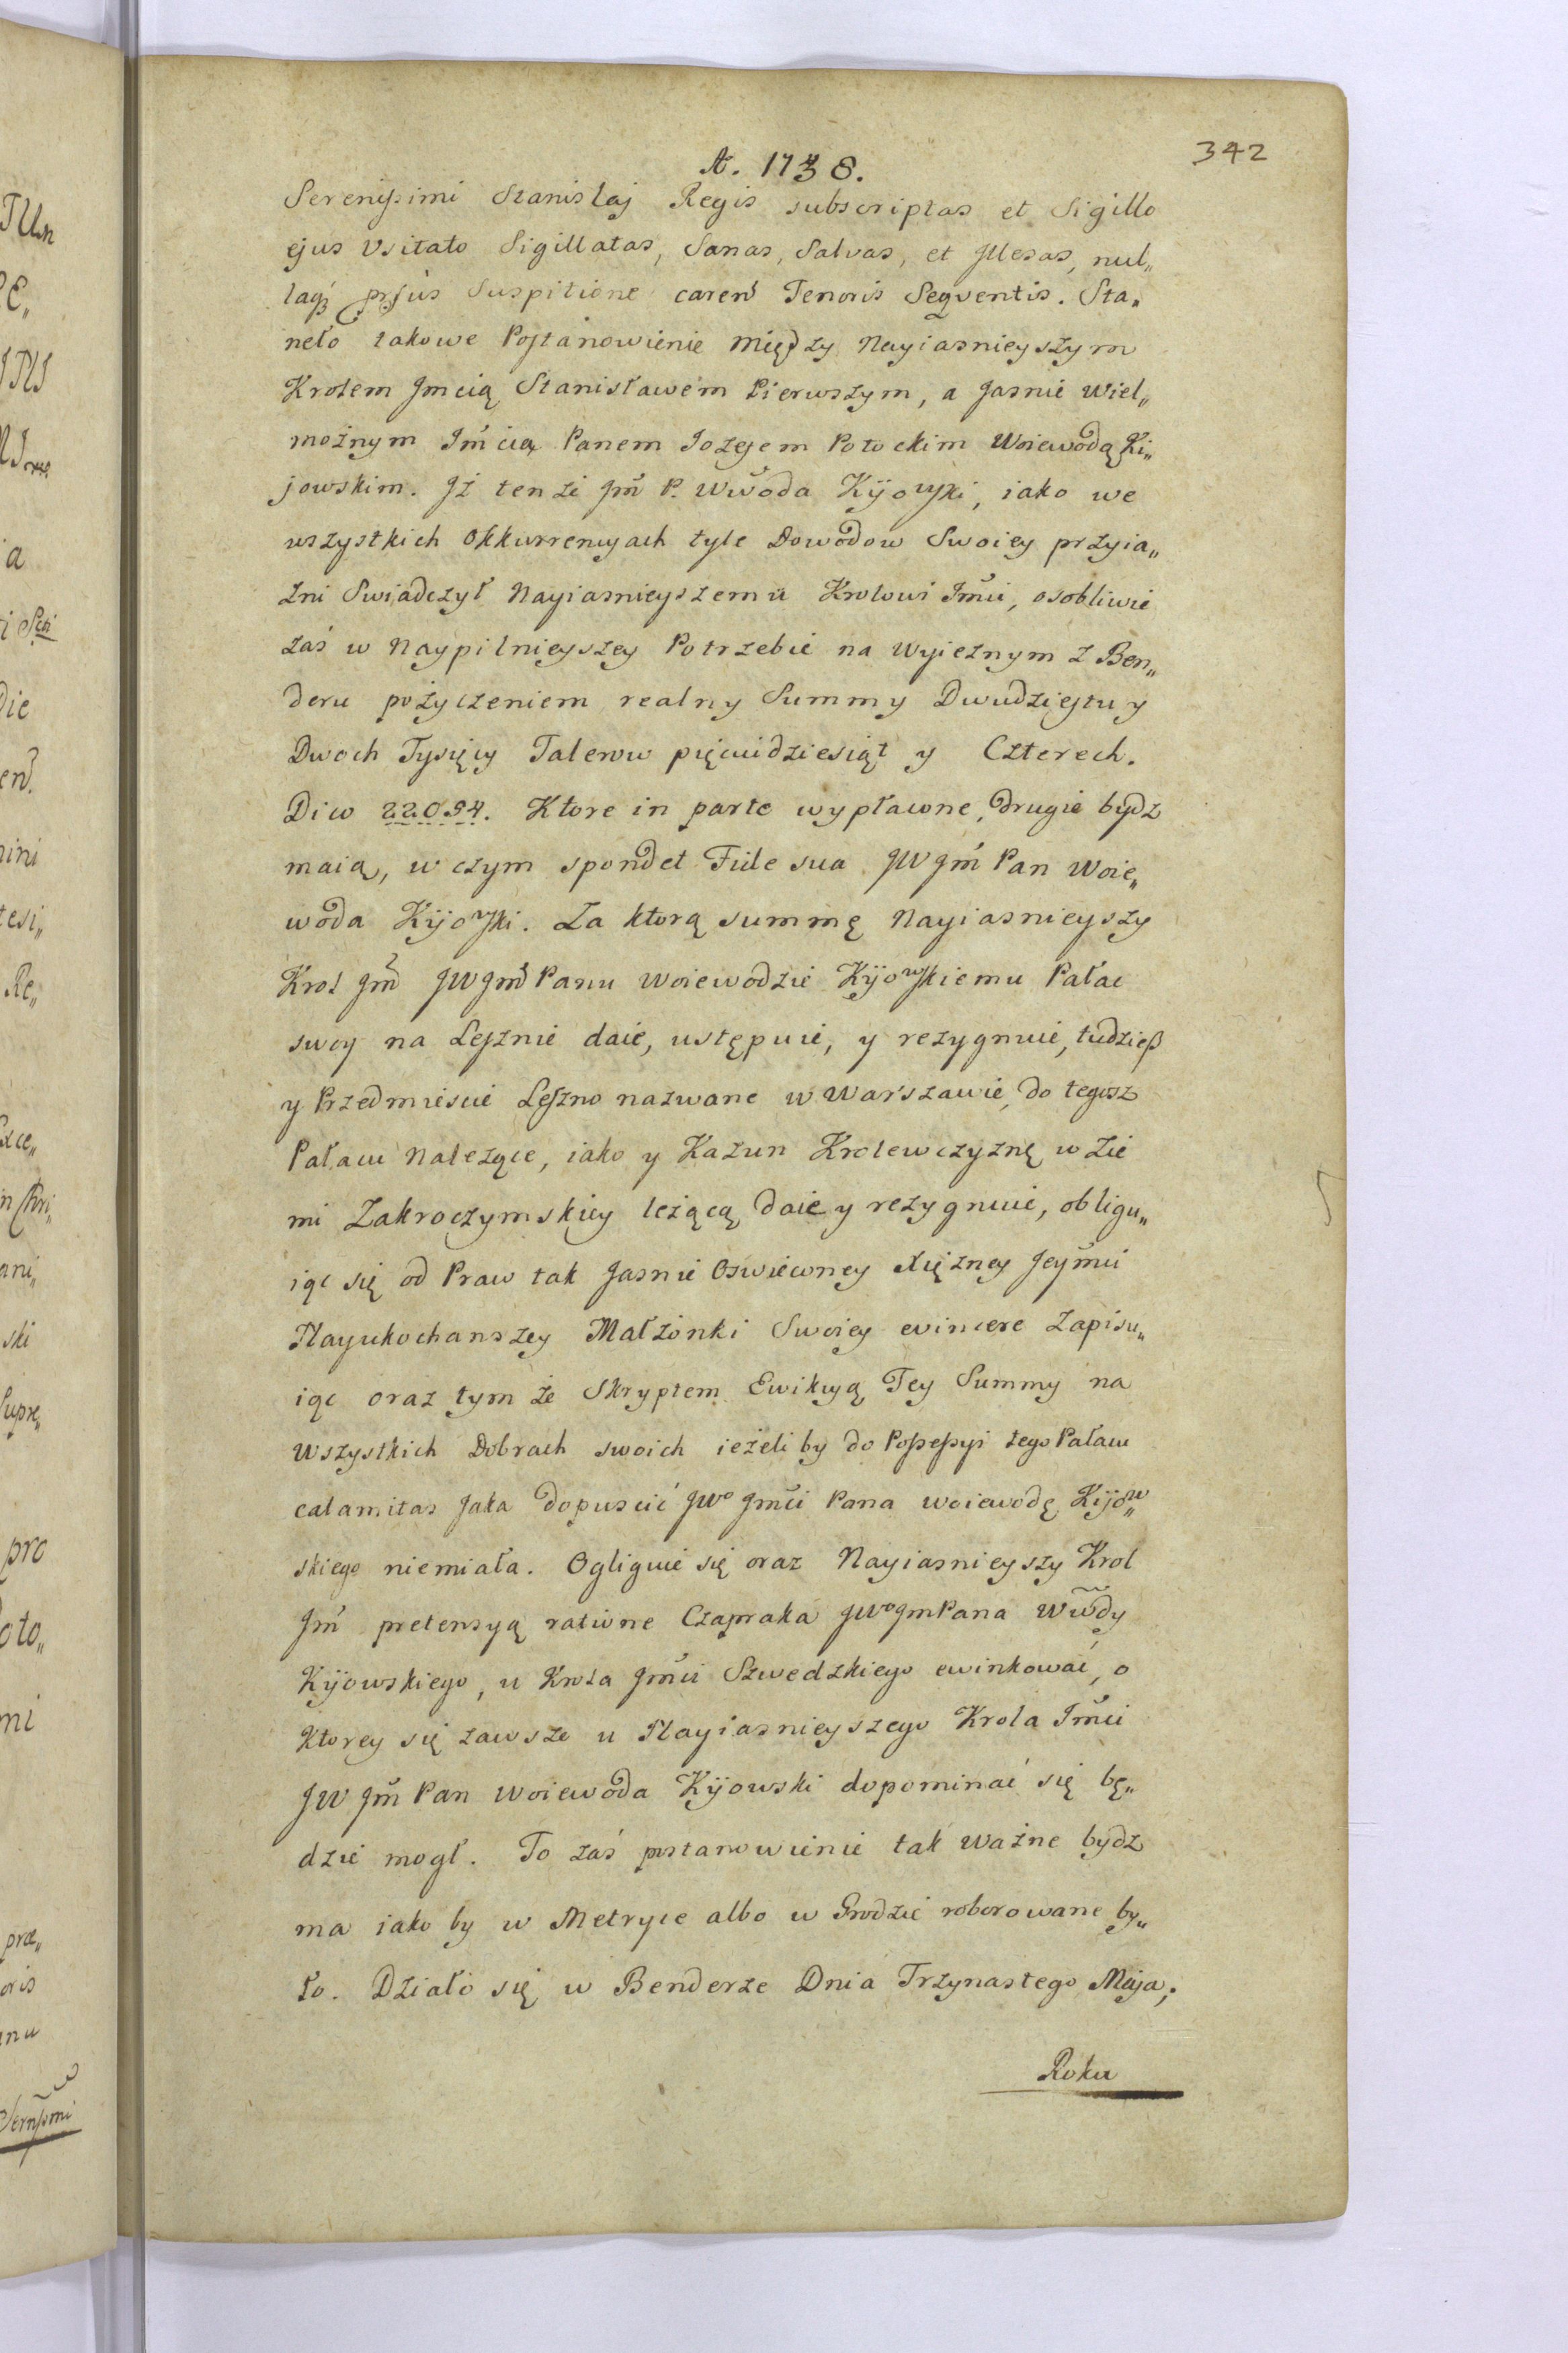 342
A. 1738.
Serenissimi Stanislaj Regis subscriptas et Sigillo
ejus Usitato Sigillatas, Sanas, Salvas, et Jllesas, nul„
laqz prjus Suspitione caren Tenoris Seqventis. Sta„
neło takowe Postanowienie między Nayiasnieyszym
Krolem Jmcią Stanisławem Pierwszym, a Jasnie Wiel„
możnym Jm̃cią Panem Jozefem Potockim Woiewodą Ki„
jowskim. Jż tenże Jm̃ P. Wwoda Kijowski, iako we
wszystkich Okkurrencyach tyle Dowodow Swoiey przyia„
zni Swiadczył Nayiasnieyszemu Krolowi Jm̃ci, osobliwie
zaś w Naypilnieyszey Potrzebie na wyieznym z Ben„
deru pożyczeniem realny Summy Dwudziestu y
Dwoch Tysięcy Talerow pięcidziesiąt y Czterech.
Dico 22054. Ktore in parte wypłacone, drugie bydz
maią, w czym spondet Fide sua JW Jm̃ Pan Woie„
woda Kijowski. Za ktorą summę Nayiasnieyszy
Krol Jm̃ JW Jm̃ Panu Woiewodzie Kijowskiemu Pałac
swoy na Lesznie daie, ustępuie, y rezygnuie, tudzieß
y Przedmiescie Leszno nazwane w Warszawie, do tegosz
Pałacu Należące, iako y Kazun Krolewczyznę w Zie
mi Zakroczymskiey leżącą daie y rezygnuie, obligu„
iąc się od Praw tak Jasnie Oswiecony Xiężney Jeym̃ci
Nayukochanszey Małżonki Swoiey evincere Zapisu„
iąc oraz tym że Skryptem Ewikcyą Tey Summy na
wszystkich Dobrach swoich ieżeli by do Possessyi tego Pałacu
calamitas Jaka dopuscić JWo Jm̃ci Pana woiewodę Kijow„
skiego niemiała. Ogliguie się oraz Nayiasnieyszy Krol
Jm̃ pretensyą ratione Czapraka JWo Jm Pana Wwdy
Kijowskiego, u Krola Jm̃ci Szwedzkiego ewinkować, o
ktorey się zawsze u Nayiasnieyszego Krola Jm̃ci
JW Jm̃ Pan Woiewoda Kijowski dopominać się bę„
dzie mogł. To zaś postanowienie tak Ważne bydz
ma iako by w Metryce albo w Grodzie roborowane by„
ło. Działo się w Benderze Dnia Trzynastego Maja,
Roku